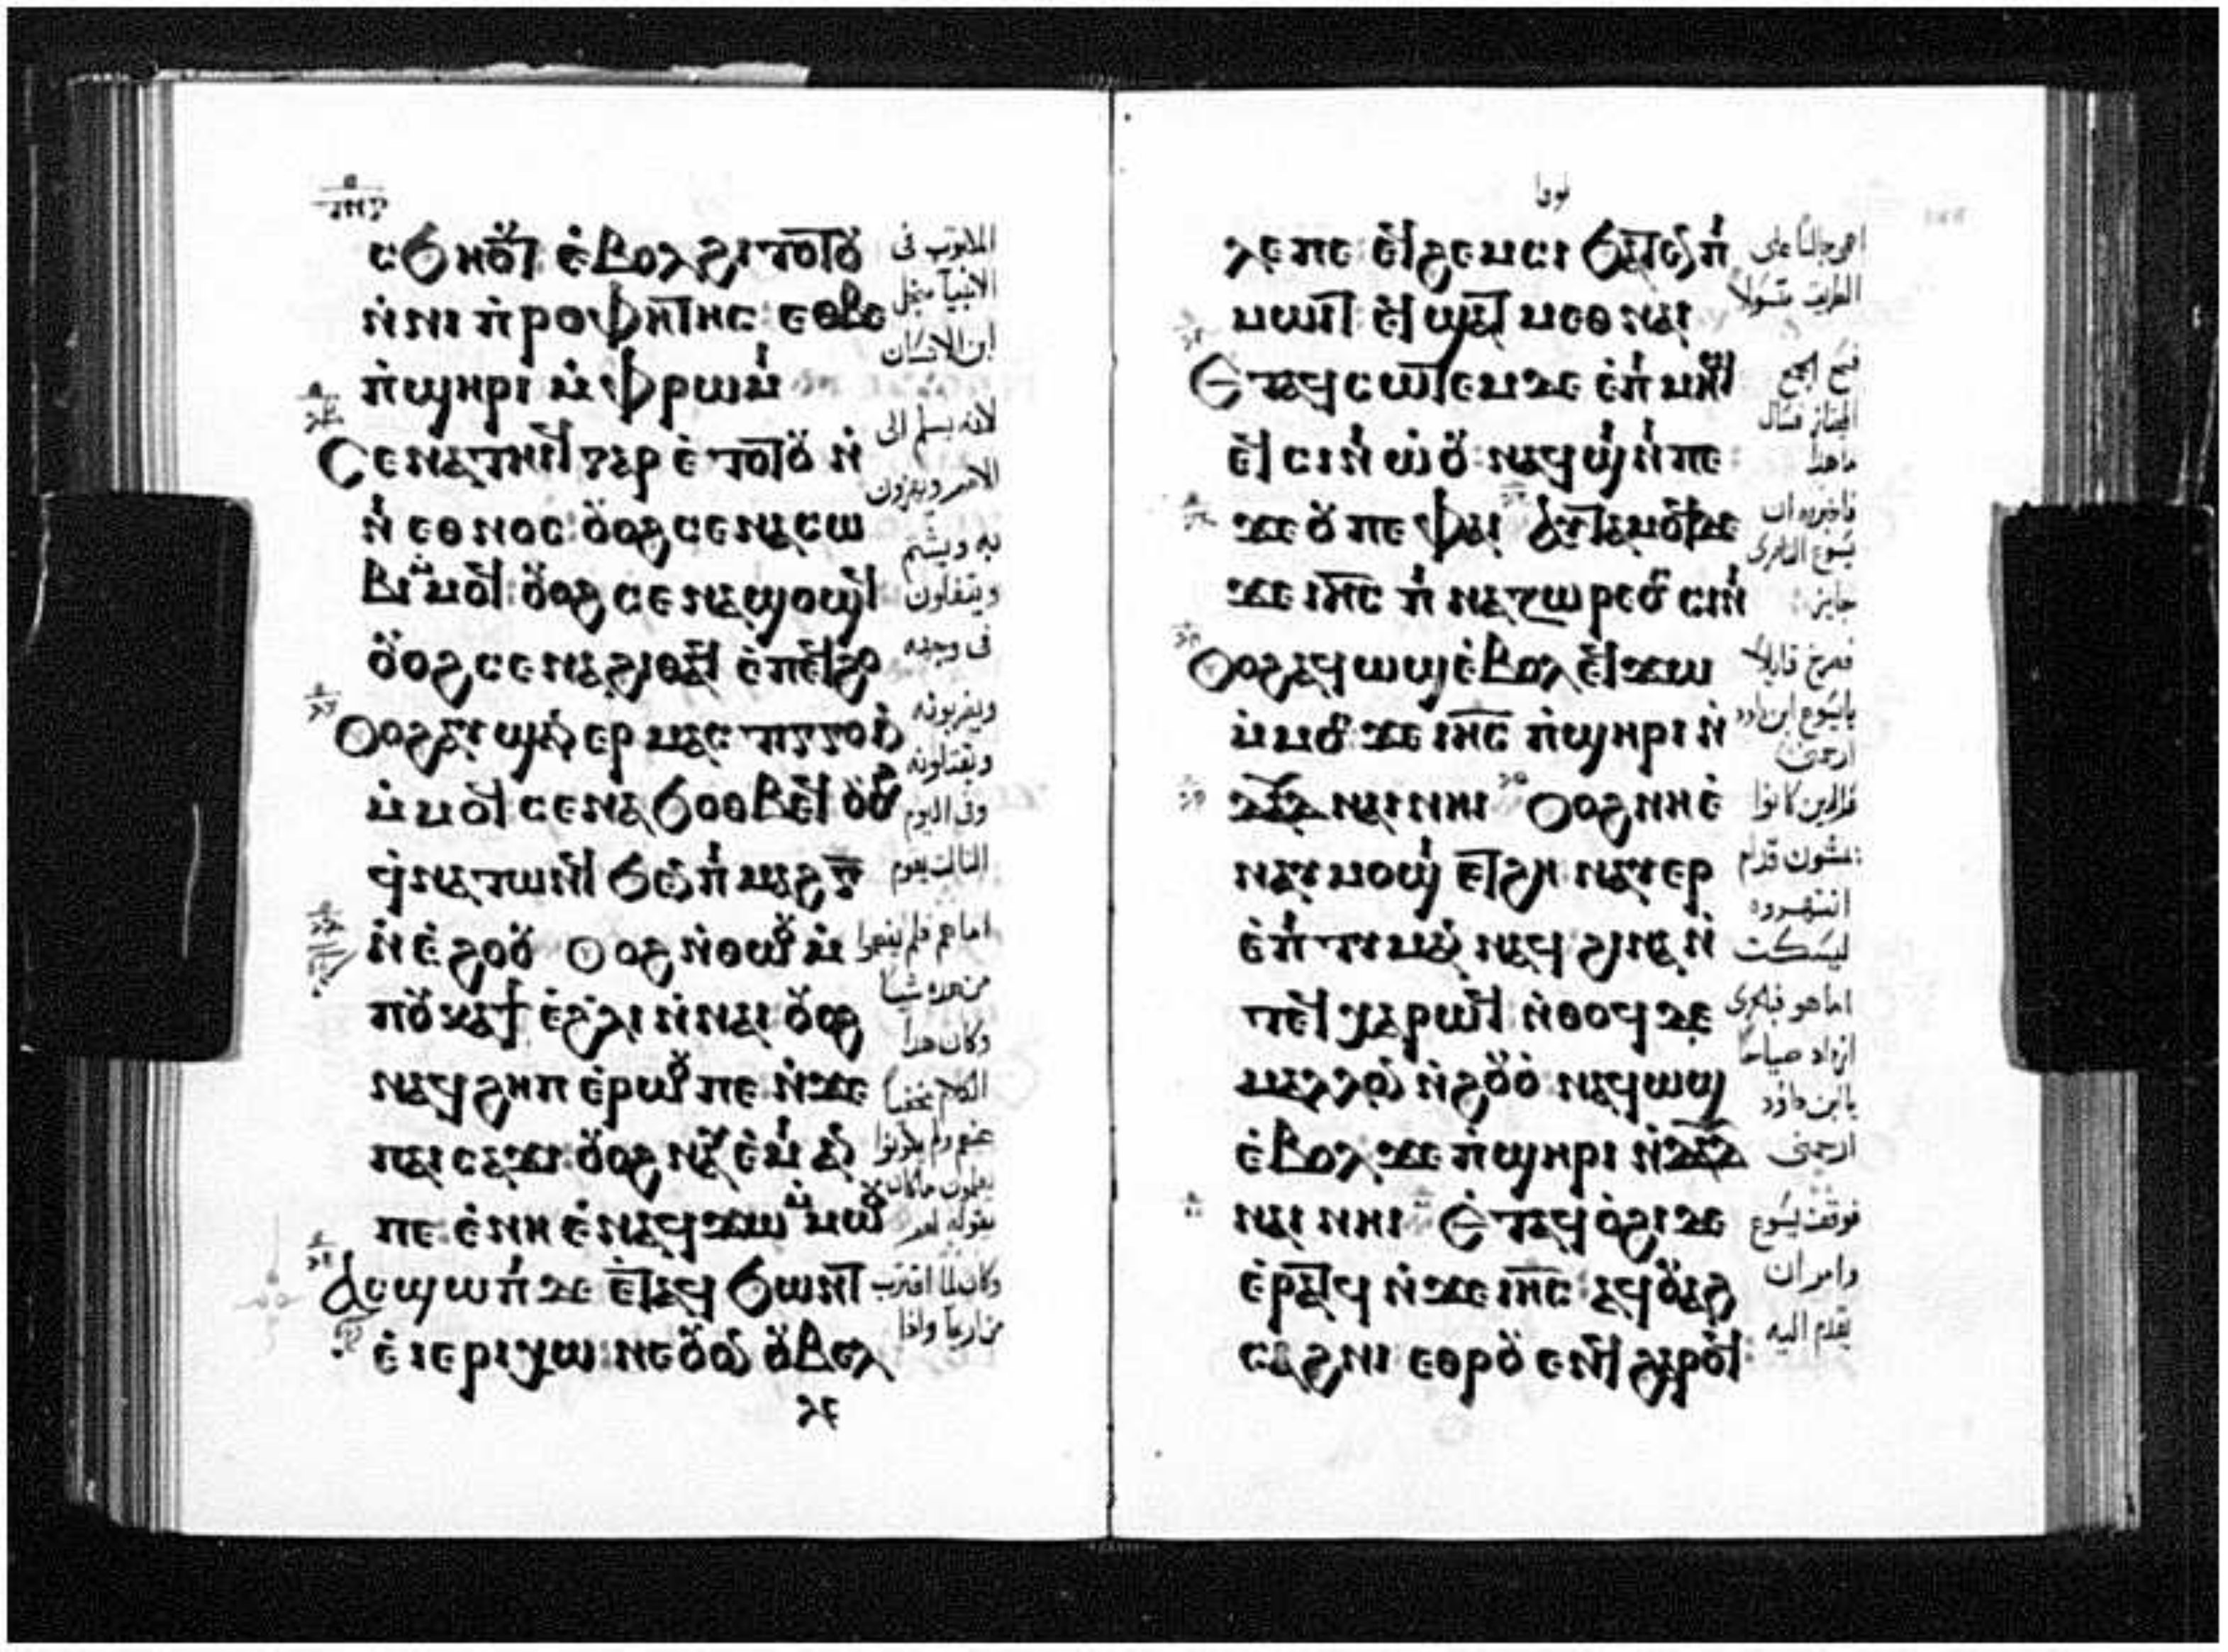 ⲥϧⲏⲟⲩⲧ ⲉ̀ⲃⲟⲗϩⲓⲧⲟⲧⲟⲩ
ⲛ̀ⲛⲓⲡ̀ⲣⲟⲫⲏⲧⲏⲥ: ⲉⲑⲃⲉ
ⲡ̀ϣⲏⲣⲓ ⲙ̀ⲫⲣⲱⲙⲓ
Ⲥⲉⲛⲁⲧⲏⲓϥ ⲅⲁⲣ ⲉ̀ⲧⲟⲧⲟⲩ ⲛ̀
ⲛⲓⲉⲑⲛⲟⲥ: ⲟⲩⲟϩ ⲥⲉⲛⲁⲥⲱ
ⲃⲓ ⲙ̀ⲙⲟϥ: ⲟⲩⲟϩ ⲥⲉⲛⲁϣⲟϣϥ
ⲟⲩⲟϩ ⲥⲉⲛⲁϩⲓⲑⲁϥ ⲉ̀ⲡⲉϥϩⲟ
Ⲟⲩⲟϩ ⲁⲩϣⲁⲛⲉⲣⲙⲁⲥⲧⲓⲅⲅⲟⲓⲛ
ⲙ̀ⲙⲟϥ ⲥⲉⲛⲁϧⲟⲑⲃⲉϥ ⲟⲩⲟϩ
ϥ̀ⲛⲁⲧⲱⲛϥ ϧⲉⲛ ⲡⲓⲙⲁϩⲅ̅
ⲛ̀ⲉ̀ϩⲟⲟⲩ Ⲟⲩⲟϩ ⲛ̀ⲑⲱⲟⲩ ⲙ̀
ⲡⲟⲩⲕⲁϯ ⲉ̀ϩⲗⲓ ⲛ̀ⲛⲁⲓ: ⲟⲩⲟϩ
ⲛⲁϥϩⲏⲡ ⲉ̀ⲣⲱⲟⲩ ⲡⲉ ⲛ̀ϫⲉ
ⲡⲁⲓⲥⲁϫⲓ: ⲟⲩⲟϩ ⲛⲁⲩⲉ̀ⲙⲓ ⲁⲛ
ⲡⲉ: ⲉ̀ⲛⲏ ⲉ̀ⲛⲁϥϫⲱ ⲙ̀ⲙⲱⲟⲩ
Ⲁⲥϣⲱⲡⲓ ⲇⲉ ⲉⲧⲁϥϧⲱⲛⲧ
ⲉ̀ⲓⲉⲣⲓⲭⲱ: ⲛⲉⲟⲩⲟⲛ ⲟⲩⲃⲉⲗ
ⲗⲉ
المكتوب فى
الانبيآ من اجل
ابن الانسان
لانه يسلم الى
الامم ويهزون
به ويشتم
ويتفلون
فى وجهه
ويضربونه
ويقتلونه
وفى اليوم
الثالث يقوم
اما هم فلم يفهموا
من هذه شيئا
وكان هذا
الكلام مخفيا
عنهم ولم يكونوا
يعلمون ماكان
يقوله لهم
وكان لما اقترب
من اريحا واذا
لوقا
ⲗⲉ ⲡⲉ: ⲉϥϩⲉⲙⲥⲓ ϧⲁⲧⲉⲛ ⲡⲓ
ⲙⲱⲓⲧ ⲉϥϣⲁⲧ ⲙⲉⲑⲛⲁⲓ
Ⲉⲧⲁϥⲥⲱⲧⲉⲙ ⲇⲉ ⲉ̀ⲡⲓⲙⲏϣ
ⲉϥⲥⲓⲛⲓⲱⲟⲩ: ⲛⲁϥϣⲓⲛⲓ ⲡⲉ:
ϫⲉ ⲟⲩ ⲡⲉ ⲫⲁⲓ Ⲁⲩⲧⲁⲙⲟϥ ϫⲉ
ϫⲉ ⲓⲏⲥ̅ ⲡⲓⲛⲁⲍⲱⲣⲉⲟⲥ ⲥⲓⲛⲓ
Ⲟⲩⲟϩ ⲁϥⲱϣ ⲉ̀ⲃⲟⲗ ⲉϥϫⲱ
ⲙ̀ⲙⲟⲥ ϫⲉ ⲓⲏⲥ̅ ⲡ̀ϣⲏⲣⲓ ⲛ̀
ⲇⲁⲇ̅ ⲛⲁⲓ ⲛⲏⲓ Ⲟⲩⲟϩ ⲛⲏ ⲉ̀
ⲛⲁⲩⲙⲟϣⲓ ⲉⲧϩⲏ ⲛⲁⲩⲉⲣ
ⲉ̀ⲡⲓⲧⲓⲙⲁⲛ ⲛⲁϥ ϩⲓⲛⲁ ⲛ̀
ⲧⲉϥⲭⲁⲣⲱϥ ⲛ̀ⲑⲟϥ ⲇⲉ
ⲙⲁⲗⲗⲟⲛ ⲛ̀ϩⲟⲩⲟ̀ ⲛⲁϥⲱϣ
ⲉ̀ⲃⲟⲗ: ϫⲉ ⲡ̀ϣⲏⲣⲓ ⲛ̀ⲇⲁⲇ̅
ⲛⲁⲓ ⲛⲏⲓ Ⲉⲧⲁϥⲟ̀ϩⲓ ⲇⲉ
ⲉ̀ⲣⲁⲧϥ ⲛ̀ϫⲉ ⲓⲏⲥ̅: ⲁϥⲟⲩⲁϩ
ⲥⲁϩⲛⲓ ⲉⲑⲣⲟⲩⲉⲛϥ ϩⲁⲣⲟϥ:
الطريق متسولا
فسمع الجمع
المجتاز فسال
ما هذا
فاخبروه ان
يسوع الناصرى
جايز
فصرخ قايلا
يا يسوع ابن داود
ارحمنى
فالذين كانوا
يمشون قدام
انتهروه
ليسكت
اما هو فبالحرى
ازداد صياحا
يا ابن داوود
ارحمنى
فوقف يسوع
وامر ان
يقدم اليه